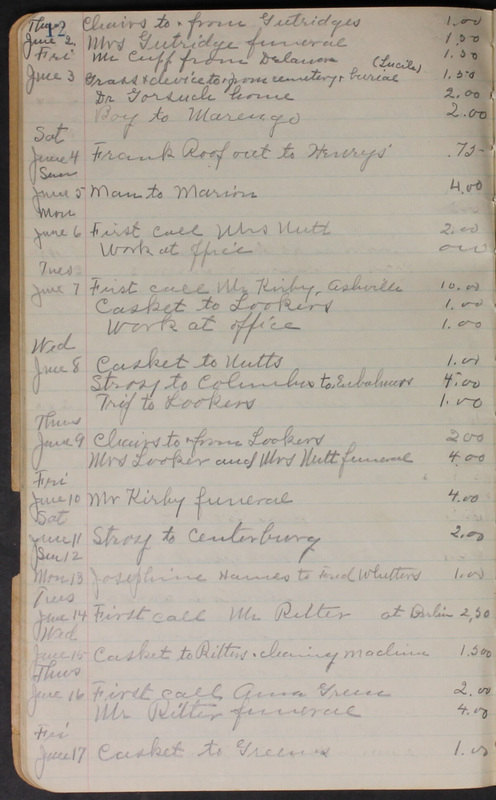 12
Thurs Chairs to & from Gutridges 1.00
June 2. Mrs Gutridge funeral 1.50
Fri Mr Cuff from Delaware (Lucile) 1.50
June 3 Grass & device to & from cemetery & burial 1.50
Dr Gorsuch home 2.00
Boy to Marengo 2.00
Sat
June 4 Frank Roof out to Henrys .75
Sun
June 5 Man to Marion 4.00
Mon
June 6 First call Mrs Nutt 2.00
Work at office
Tues
June 7 First call Mr Kirby, Ashville 10.00
Casket to Lookers 1.00
Work at office 1.00
Wed
June 8 Casket to Nutts 1.00
Strosy to Columbus to Embalmers 4.00
Trip to Lookers 1.00
Thurs
June 9 Chairs to & from Lookers 2.00
Mrs Looker and Mrs Nutt funeral 4.00
Fri
June 10 Mr Kirby funeral 4.00
Sat
June 11 Strosy to Centerburg 2.00
Sun 12
Mon 13 Josephine Hames to Fred Whitters 1.00
Tues
June 14 First call Mr Ritter at Berlin 2.50
Wed
June 15 Casket to Ritters & cleaning machine 1.500
Thurs
June 16 First call Anna Green 2.00
Mr Ritter funeral 4.00
Fri
June 17 Casket to Greens 1.00